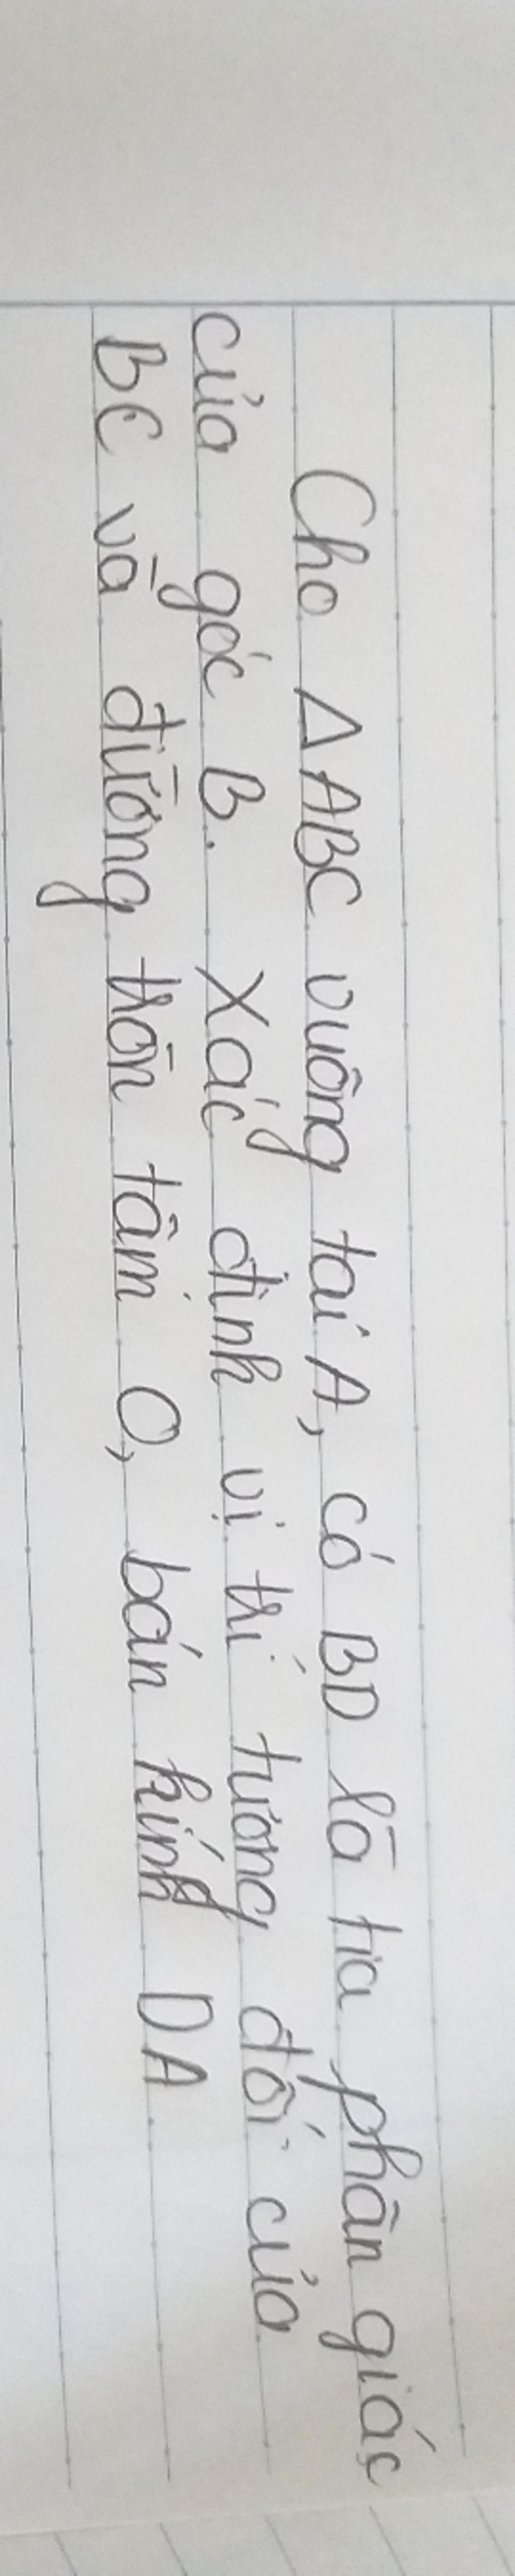 Cho ΔABC vuông tại A, có BD là tia phân giác
của góc B. Xác định vị trí tương đối của
BC và đường tròn tâm O, bán kính DA